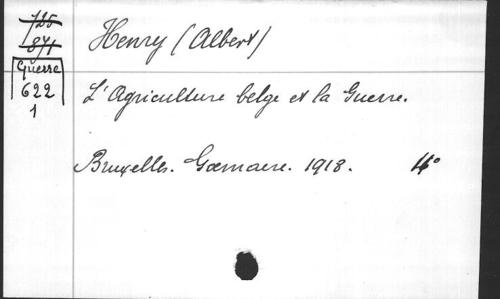 725
871
Guerre
622
1
Henry (Albert)
L'Agriculture belge et la Guerre.
Bruxelles. Goemaere. 1918. 4°